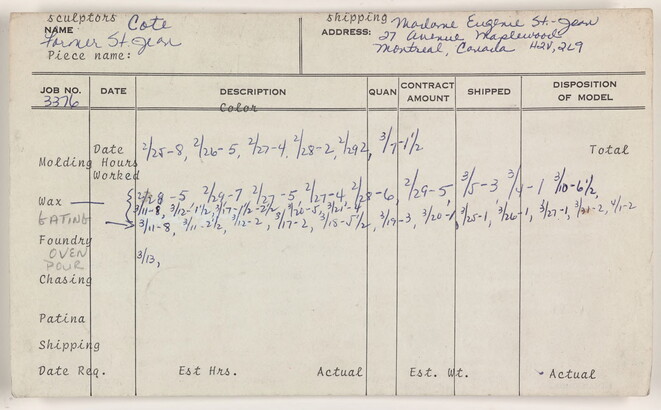 sculptors Cote shipping Madame Eugenie St.-Jean
NAME ADDRESS: 27 Avenue Maplewood
Former St. Jean Montreal, Canada H2V, 2L9
Piece name:
JOB NO. DATE DESCRIPTION QUAN. CONTRACT AMOUNT SHIPPED DISPOSITION OF MODEL
3376 Color
Date 2/25-8, 2/26-5, 2/27-4, 2/28-2, 2/29 2, 3/7-1 1/2 Total
Molding Hours
Worked
Wax 2/28-5 2/29-7 2/27-5 2/27-4 2/28-6, 2/29-5, 3/5-3 3/4-1 3/10-6 1/2,
3/11-8, 3/12-1 1/2, 3/17-1 1/2-2 1/2, 3/20-5, 3/21-4
GATING 3/11-8, 3/11-2 1/2, 3/12-2, 3/17-2, 3/18-5 1/2, 3/19-3, 3/20-1, 3/25-1, 3/26-1, 3/27-1, 3/31-2, 4/1-2
Foundry
OVEN 3/13,
POUR
Chasing
Patina
Shipping
Date Req. Est Hrs. Actual Est. Wt. Actual